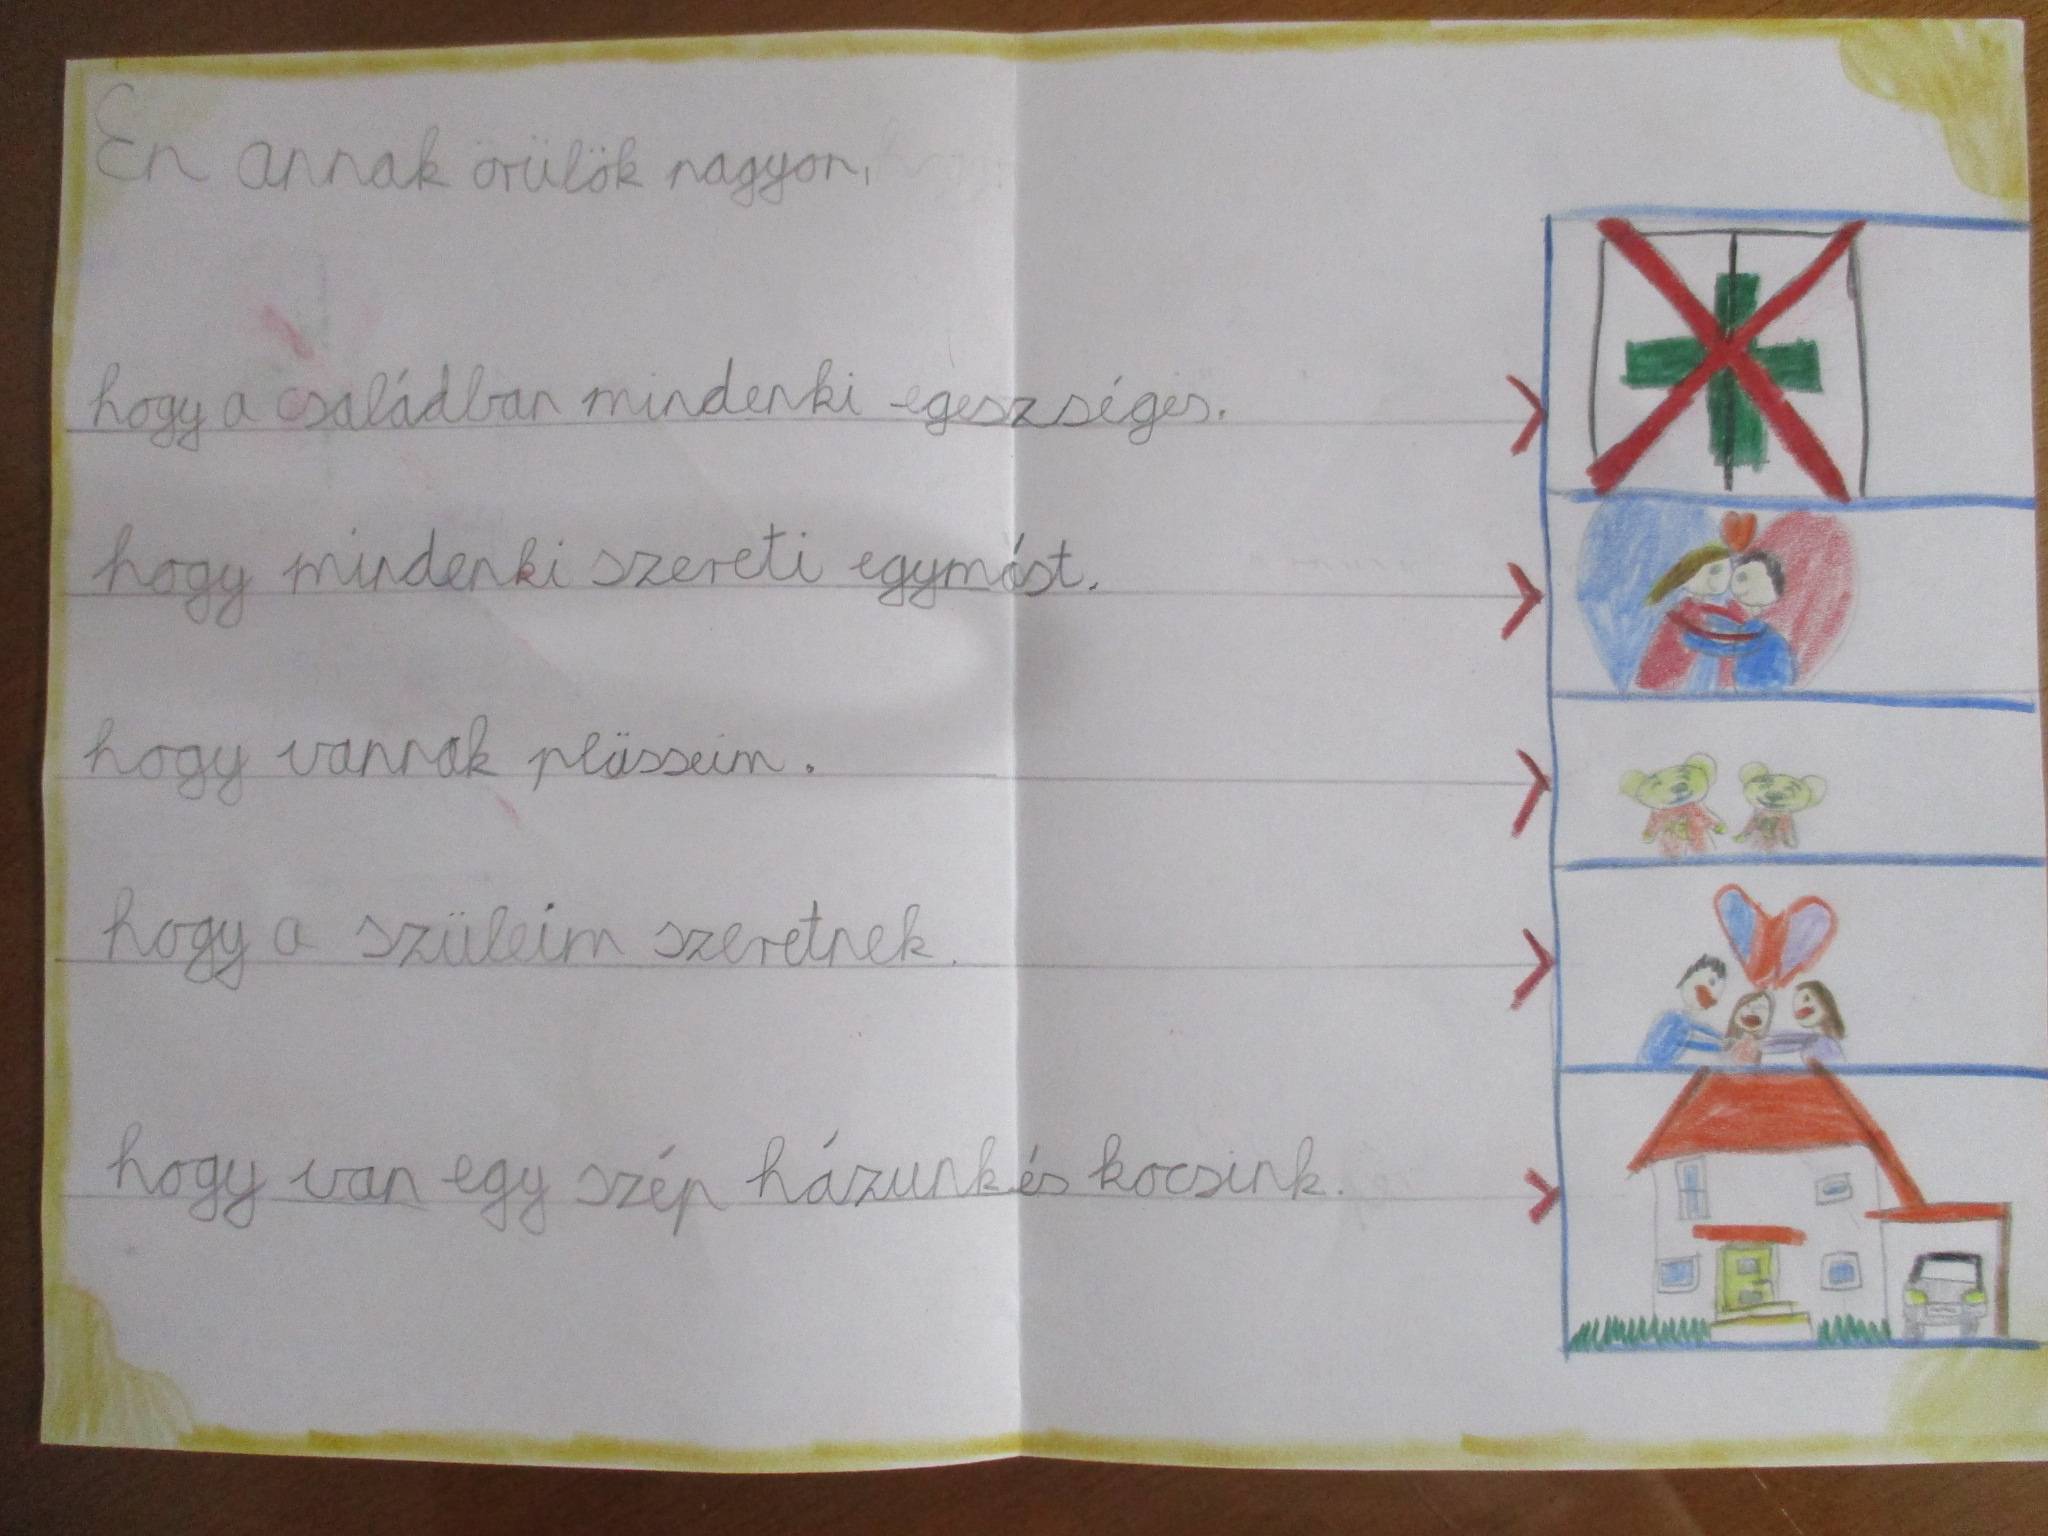 Én annak örülök nagyon,
hogy a családban mindenki egeszséges.
hogy mindenki szereti egymást.
hogy vannak plüsseim.
hogy a szüleim szeretnek.
hogy van egy szép házunk és kocsink.